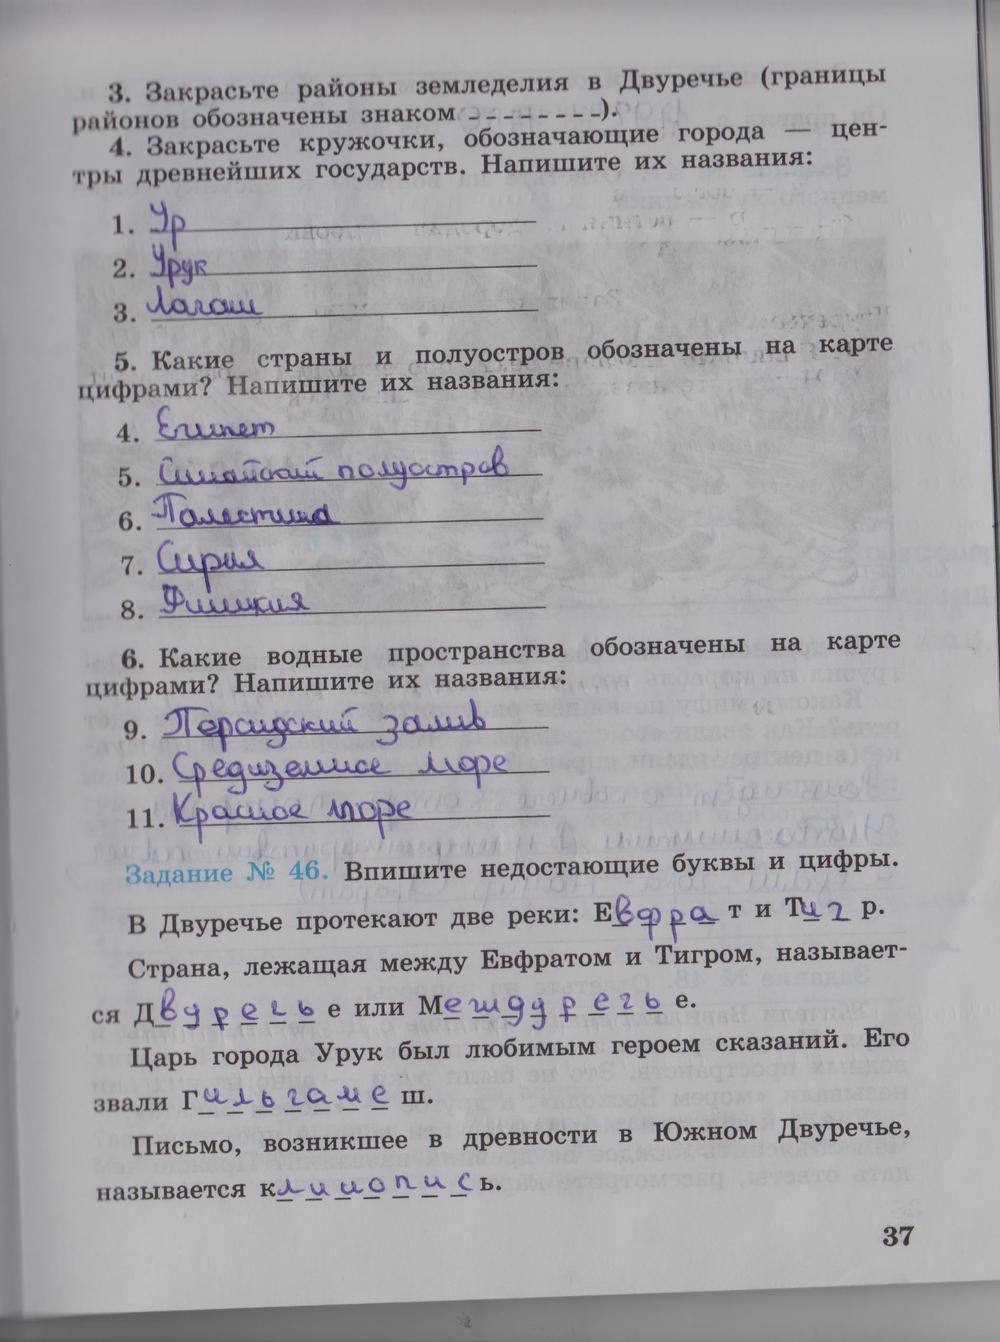 3. Закрасьте районы земледелия в Двуречье (границы
районов обозначены знаком --------).
4. Закрасьте кружочки, обозначающие города — цен-
тры древнейших государств. Напишите их названия:
1. Ур
2. Урук
3. Лагаш
5. Какие страны и полуостров обозначены на карте
цифрами? Напишите их названия:
4. Египет
5. Синайский полуостров
6. Палестина
7. Сирия
8. Финикия
6. Какие водные пространства обозначены на карте
цифрами? Напишите их названия:
9. Персидский залив
10. Средиземное море
11. Красное море
Задание № 46. Впишите недостающие буквы и цифры.
В Двуречье протекают две реки: Евфрат и Тигр.
Страна, лежащая между Евфратом и Тигром, называет-
ся Двуречье или Междуречье.
Царь города Урук был любимым героем сказаний. Его
звали Гильгамеш.
Письмо, возникшее в древности в Южном Двуречье,
называется клинопись.
37